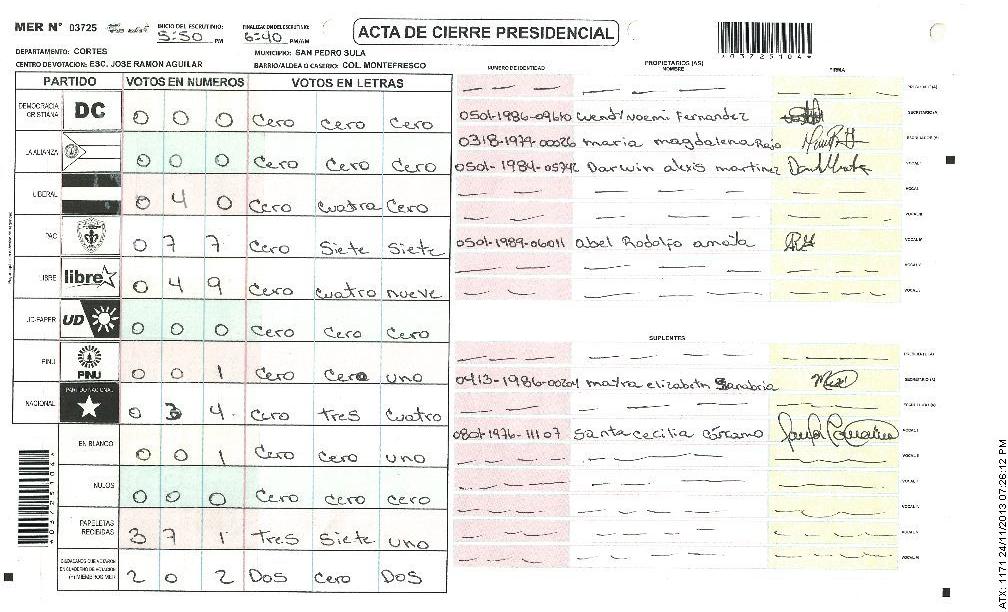 MER N° 03725
INICIO DEL ESCRUTINIO: 5:50 PM
FINALIZACION DEL ESCRUTINIO: 6:40 PM/AM
ACTA DE CIERRE PRESIDENCIAL
*03725104*
DEPARTAMENTO: CORTES
MUNICIPIO: SAN PEDRO SULA
CENTRO DE VOTACION: ESC. JOSE RAMON AGUILAR
BARRIO/ALDEA O CASERIO: COL. MONTEFRESCO
PARTIDO VOTOS EN NUMEROS VOTOS EN LETRAS
DEMOCRACIA CRISTIANA DC 0 0 0 Cero Cero Cero
LA ALIANZA 0 0 0 Cero Cero Cero
LIBERAL 0 4 0 Cero Cuatro Cero
PAC 0 7 7 Cero Siete Siete
LIBRE libre 0 4 9 Cero Cuatro nueve
UD-FAPER UD 0 0 0 Cero Cero Cero
PINU PINU 0 0 1 Cero Cero uno
NACIONAL PARTIDO NACIONAL 0 3 4 Cero Tres Cuatro
EN BLANCO 0 0 1 Cero Cero uno
NULOS 0 0 0 Cero Cero Cero
PAPELETAS RECIBIDAS 3 7 1 Tres Siete uno
CIUDADANOS QUE VOTARON EN CUADERNO DE VOTACION (+) MIEMBROS MER 2 0 2 Dos Cero Dos
NUMERO DE IDENTIDAD
PROPIETARIOS (AS)
NOMBRE
FIRMA
PRESIDENTE (A)
0501-1986-09610 Wendy Noemi Fernandez SECRETARIO (A)
0318-1979-00026 maria magdalena Rajo ESCRUTADOR (A)
0501-1984-05742 Darwin alexis martinez VOCAL I
VOCAL II
VOCAL III
0501-1989-06011 abel Rodolfo amaya VOCAL IV
VOCAL V
VOCAL VI
SUPLENTES
PRESIDENTE (A)
0413-1986-00204 mayra elizabeth Sanabria SECRETARIO (A)
ESCRUTADOR (A)
0801-1976-11107 Santa Cecilia Cárcamo VOCAL I
VOCAL II
VOCAL III
VOCAL IV
VOCAL V
VOCAL VI
*03725104*
ATX: 1171 24/11/2013 07:26:12 PM